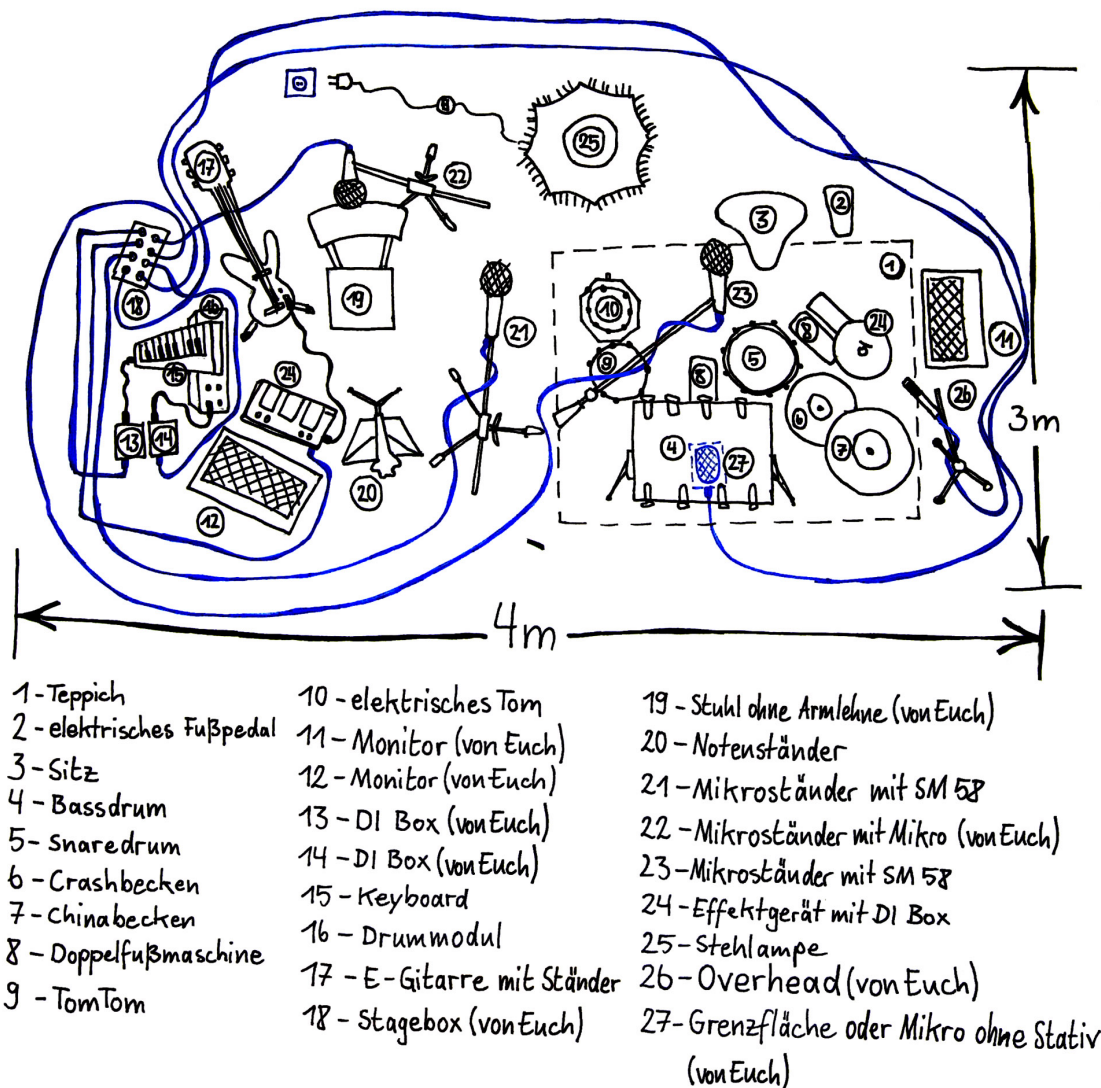 25
17
22
3
2
1
18
16
19
21
10
23
8
24
11
15
24
9
8
5
26
6
3m
13
14
20
4
27
7
12
4m
1 - Teppich
2 - elektrisches Fußpedal
3 - Sitz
4 - Bassdrum
5 - Snaredrum
6 - Crashbecken
7 - Chinabecken
8 - Doppelfußmaschine
9 - TomTom
10 - elektrisches Tom
11 - Monitor (von Euch)
12 - Monitor (von Euch)
13 - DI Box (von Euch)
14 - DI Box (von Euch)
15 - Keyboard
16 - Drummodul
17 - E-Gitarre mit Ständer
18 - Stagebox (von Euch)
19 - Stuhl ohne Armlehne (von Euch)
20 - Notenständer
21 - Mikroständer mit SM 58
22 - Mikroständer mit Mikro (von Euch)
23 - Mikroständer mit SM 58
24 - Effektgerät mit DI Box
25 - Stehlampe
26 - Overhead (von Euch)
27 - Grenzfläche oder Mikro ohne Stativ
(von Euch)